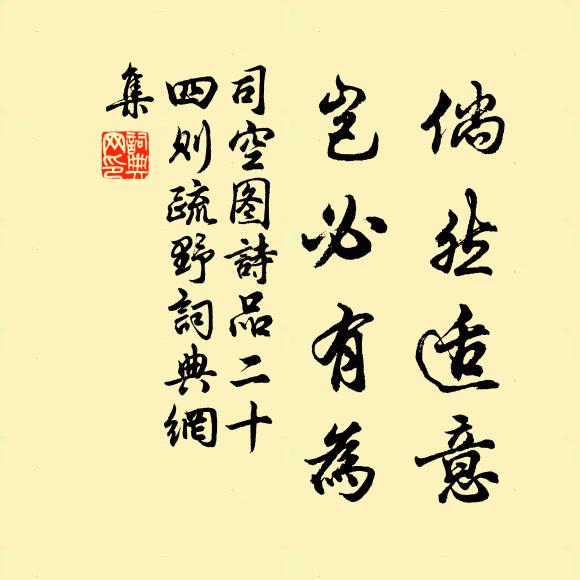 倘然适意
岂必有為
司空图詩品二十
四则疏野詞典網
集
詞典網印